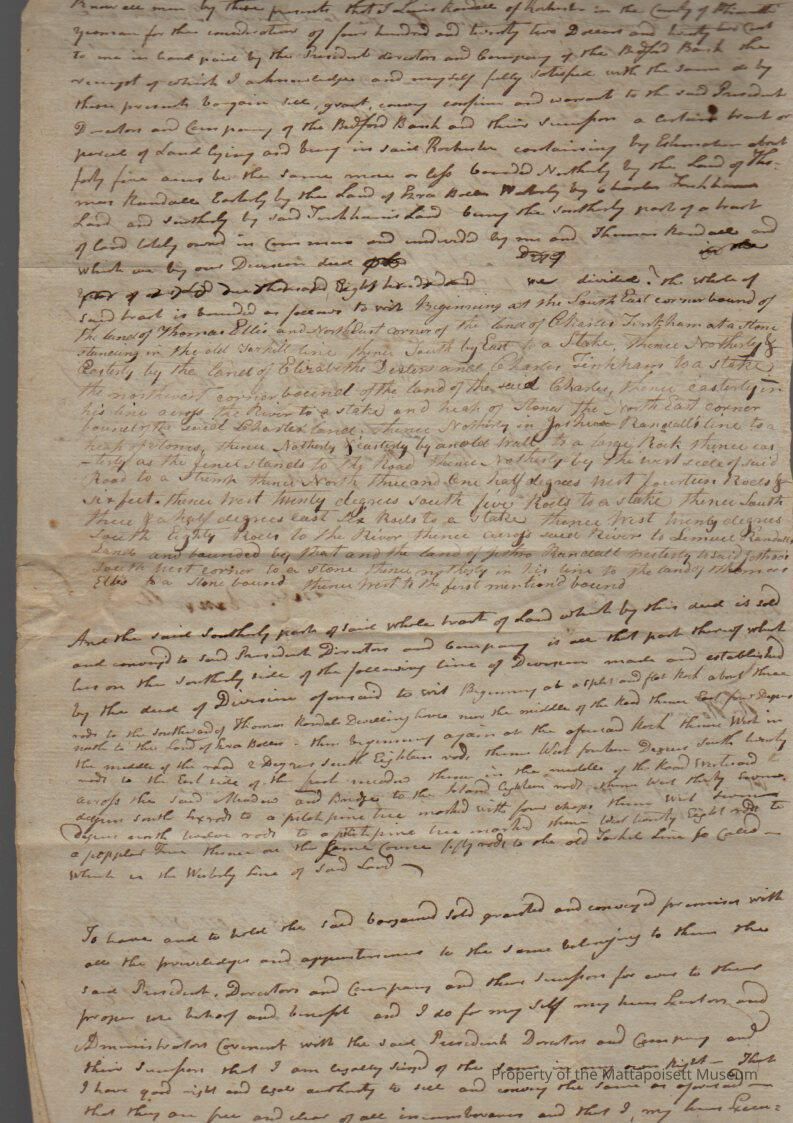 Know all men by these presents that I Lewis Randall of Rochester in the County of Plymouth
yeoman for the consideration of four hundred and twenty two Dollars and twenty two Cents
to me in hand paid by the President directors and Company of the Bedford Bank the
receipt of which I acknowledge and myself fully satisfied with the same do by
these presents bargain sell, grant, convey confirm and warrant to the said President
Directors and Company of the Bedford Bank and their successors a certain tract or
parcel of Land lying and being in said Rochester containing by Estimation about
forty five acres be the same more or less bounded Northerly by the Land of Tho=
mas Randall Easterly by the Land of Ezra Bolles Westerly by Charles Tinkhams
Land and southerly by said Tinkham's Land being the southerly part of a tract
of land lately owned in common and undivided by me and Thomas Randall and
which we by our Division deed
one thousand Eight hundred and we divided. the whole of
said tract is bounded as follows to wit Beginning at the South East corner bound of
the land of Thomas Ellis and North East corner of the land of Charles Tinkham at a stone
standing in the old Tarkill line thence South by East to a Stake, thence Northerly &
Easterly by the land of Elizabeth Dexters and Charles Tinkhams to a stake
the northwest corner bound of the land of the said Charles, thence easterly in
his line across the River to a stake and heap of Stones the North East corner
bound of the said Charles land. thence Northerly in Joshua Randall's line to a
heap of stones, thence Northerly & easterly by an old wall to a large Rock thence eas
-terly as the fence stands to the Road thence Northerly by the west side of said
Road to a Stump thence North three and One half degrees West fourteen Rods &
six feet. thence West twenty degrees south five Rods to a stake thence South
three & a half degrees east Six Rods to a Stake thence West twenty degrees
South Eighty Rods to the River thence across said River to Lemuel Randalls
Land and bounded by that and the land of Jethro Randall westerly to said Jethro's
South West corner to a stone thence northerly in his line to the land of Thomas
Ellis to a Stone bound thence West to the first mentioned bound
And the said Southerly part of said whole tract of Land which by this deed is sold
and conveyed to said President Directors and Company is all that part thereof which
lies on the southerly side of the following line of Division made and established
by the deed of Division aforesaid to wit Beginning at a split and flat Rock about three
rods to the southward of Thomas Randals Dwelling house near the middle of the Road thence East four Degrees
north to the Land of Ezra Bolles - then beginning again at the aforesaid Rock thence West in
the middle of the road 2 Degrees south Eighteen rods thence West fourteen Degrees south twenty
rods to the East side of the meadow thence in the middle of the Road Westward
across the said Meadow and Bridge to the Island Eighteen rods thence West thirty seven
degrees south six rods to a pitch pine tree marked with four chops thence West seven
degrees north twelve rods to a pitch pine tree marked thence West twenty Eight rods to
a popplar Tree thence on the same Course fifty rods to the old Tarkil Line so Called —
which is the Westerly Line of said Land —
To have and to hold the said bargained sold granted and conveyed premises with
all the priviledges and appurtenances to the same belonging to them the
said President, Directors and Company and their successors for ever to their
proper use behoof and benefit and I do for my self my heirs Executors and
Administrators Covenant with the said President Directors and Company and
their Successors that I am legally seized of the same in my own Right — That
I have good right and legal authority to sell and convey the same as aforesaid —
that they are free and clear of all incumberances and that I, my heirs Execu=
Property of the Mattapoisett Museum